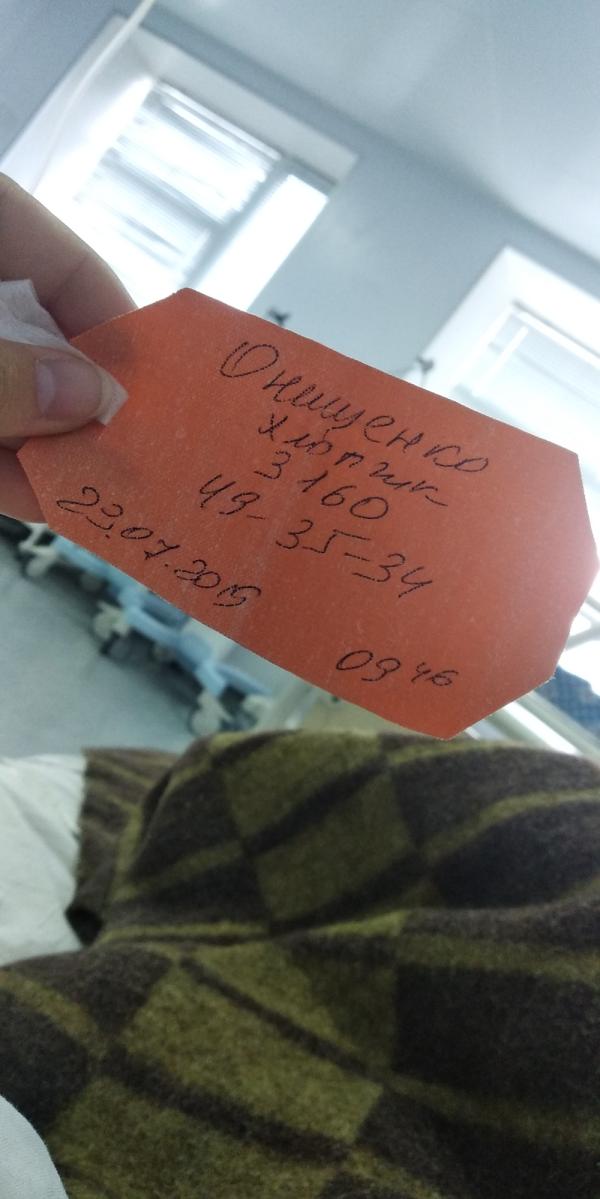 Онищенко
хлопчик
3160
49-35-34
23.07.2019
09 46